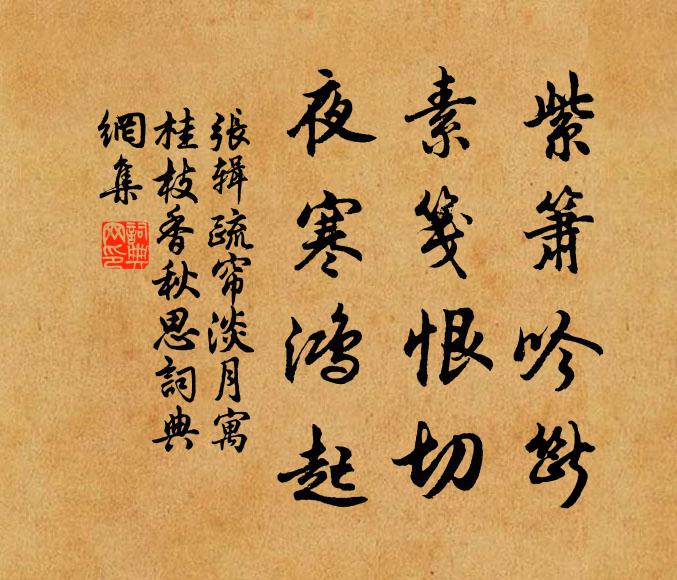 紫箫吟断
素笺恨切
夜寒鸿起
張辑疏帘淡月寓
桂枝香秋思詞典
網集
詞典
网印